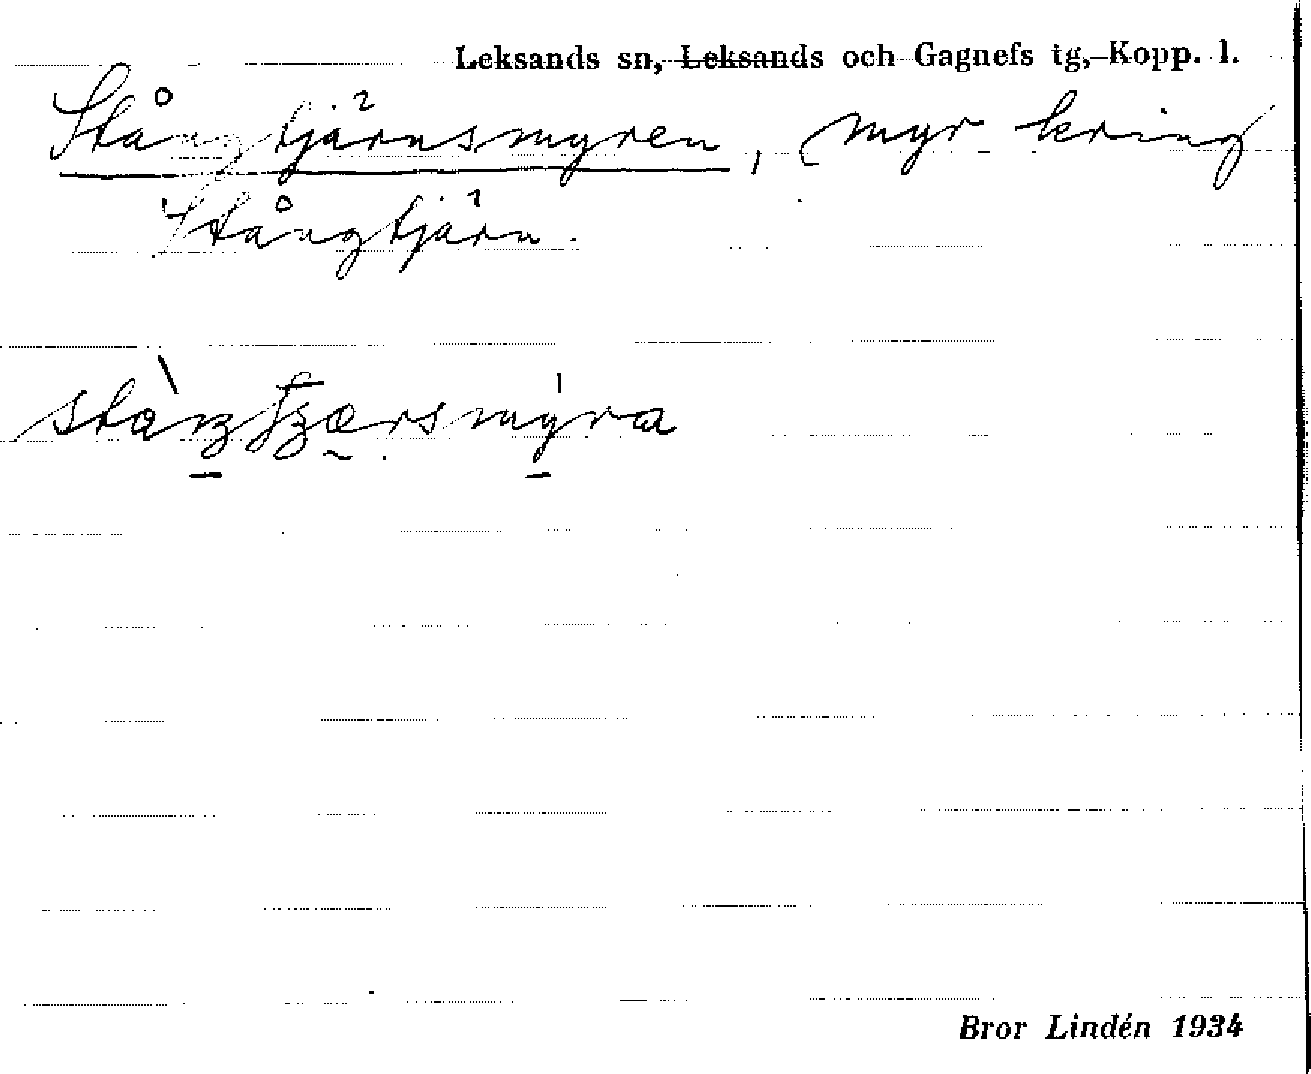 Leksands sn, Leksands och Gagnefs tg, Kopp. l.
Stångtjärnsmyren, myr kring
Stångtjärn.
Bror Lindén 1934